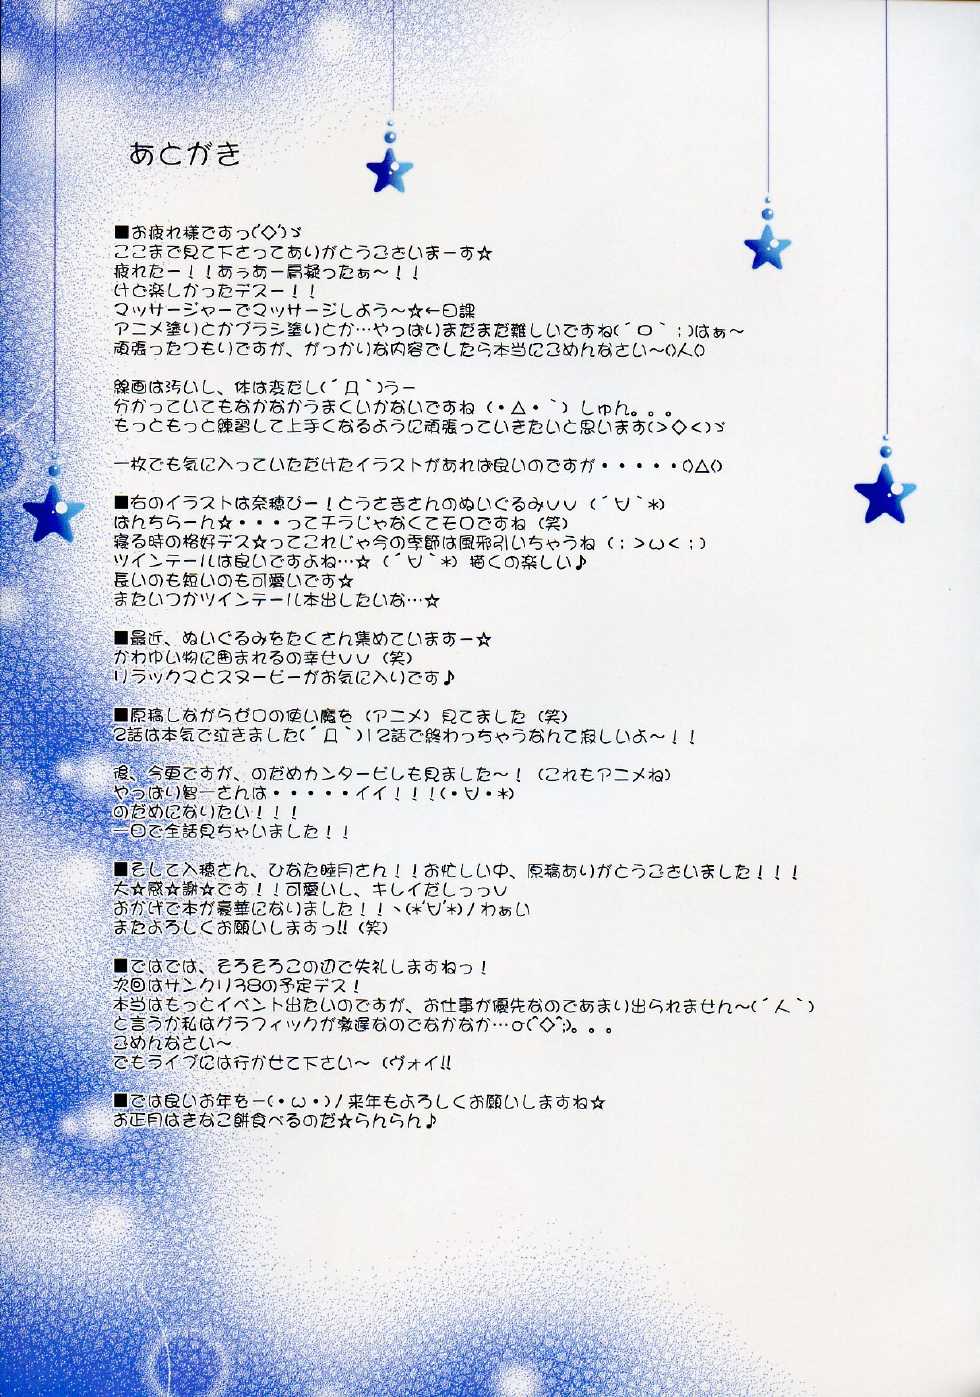 あとがき
■お疲れ様ですっ(´◇`)ゞ
ここまで見て下さってありがとうございまーす☆
疲れたー！！あぅあー肩凝ったぁ～！！
けど楽しかったデスー！！
マッサージャーでマッサージしよう～☆←日課
アニメ塗りとかブラシ塗りとか…やっぱりまだまだ難しいですね(´ロ｀；)はぁ～
頑張ったつもりですが、がっかりな内容でしたら本当にごめんなさい～()人()
線画は汚いし、体は変だし(´Д｀)うー
分かっていてもなかなかうまくいかないですね（・△・｀）しゅん。。。
もっともっと練習して上手くなるように頑張っていきたいと思います(＞◇＜)ゞ
一枚でも気に入っていただけたイラストがあれば良いのですが・・・・・()△()
■右のイラストは奈穂ぴー！とうさぎさんのぬいぐるみ∪∪（´∀｀*)
ぱんちらーん☆・・・ってチラじゃなくてモロですね（笑）
寝る時の格好デス☆ってこれじゃ今の季節は風邪引いちゃうね（；＞ω＜；）
ツインテールは良いですよね…☆（´∀｀*）描くの楽しい♪
長いのも短いのも可愛いです☆
またいつかツインテール本出したいな…☆
■最近、ぬいぐるみをたくさん集めていますー☆
かわゆい物に囲まれるの幸せ∪∪（笑）
リラックマとスヌーピーがお気に入りです♪
■原稿しながらゼロの使い魔を（アニメ）見てました（笑）
2話は本気で泣きました(´Д｀)12話で終わっちゃうなんて寂しいよ～！！
後、今更ですが、のだめカンタービレも見ました～！（これもアニメね）
やっぱり智一さんは・・・・・イイ！！！(・∀・*)
のだめになりたい！！！
一日で全話見ちゃいました！！
■そして入穂さん、ひなた睦月さん！！お忙しい中、原稿ありがとうございました！！！
大☆感☆謝☆です！！可愛いし、キレイだしっっ∪
おかげで本が豪華になりました！！ヽ(*'∀'*)/わぁい
またよろしくお願いしますっ!!（笑）
■ではでは、そろそろこの辺で失礼しますねっ！
次回はサンクリ38の予定デス！
本当はもっとイベント出たいのですが、お仕事が優先なのであまり出られません～(´人｀)
と言うか私はグラフィックが激遅なのでなかなか…σ(^◇^;)。。。
ごめんなさい～
でもライブには行かせて下さい～（ヴォイ!!
■では良いお年をー(・ω・)/来年もよろしくお願いしますね☆
お正月はきなこ餅食べるのだ☆らんらん♪